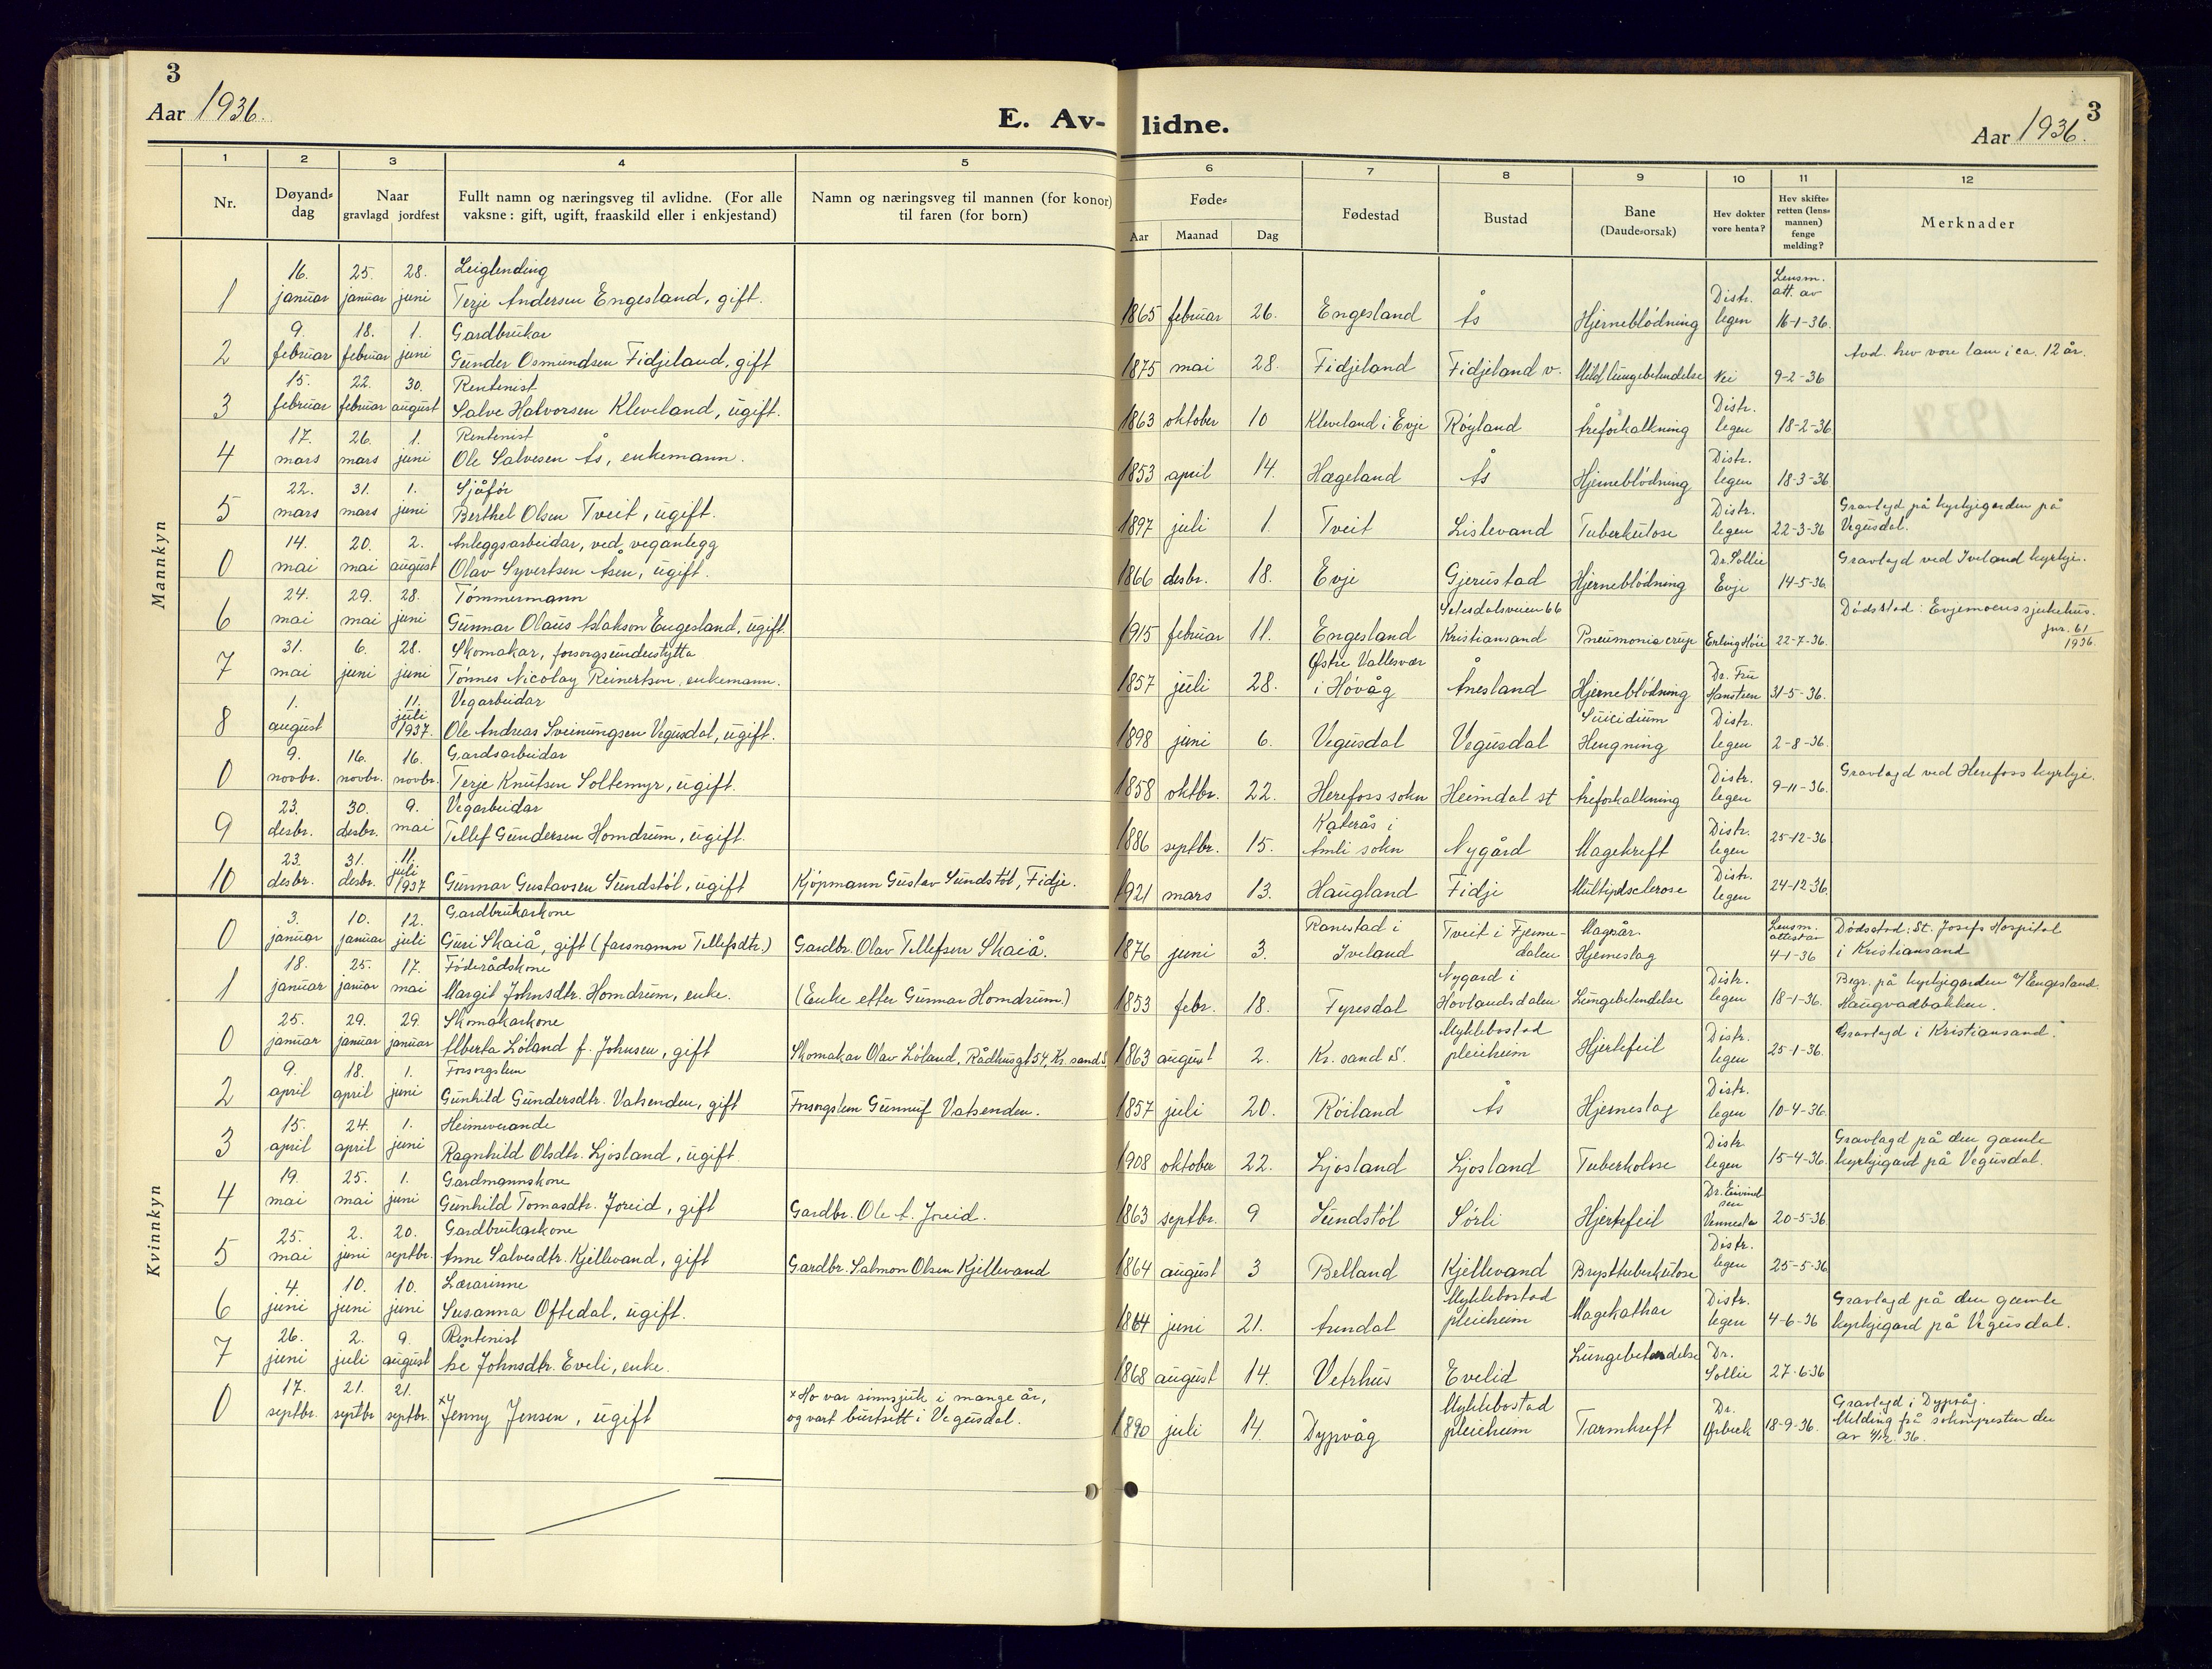 3
Aar 1936.
E. Av-
lidne.
3
Aar 1936.
1 2 3 4 5 6 7 8 9 10 11 12
Nr.
Døyand-
dag
Naar
gravlagd jordfest
Fullt namn og næringsveg til avlidne. (For alle
vaksne: gift, ugift, fraaskild eller i enkjestand)
Namn og næringsveg til mannen (for konor)
til faren (for born)
Føde-
Aar Maanad Dag
Fødestad
Bustad
Bane
(Daude-orsak)
Hev dokter
vore henta?
Hev skifte-
retten (lens-
mannen)
fenge
melding?
Merknader
Mannkyn
16. 25. 28. Leiglending Lensm.
Distr. att. av
1 januar januar juni Terje Andersen Engesland, gift. 1865 februar 26. Engesland Ås Hjerneblödning legen 16-1-36.
9. 18. 1. Gardbrukar
2 februar februar juni Gunder Osmundsen Fidjeland, gift 1875 mai 28. Fidjeland Fidjeland v. Lungebetendelse Nei 9-2-36 Avd. hev vore lam i ca. 12 år.
15. 22. 30. Rentenist Distr.
3 februar februar august Salve Halvorsen Kleveland, ugift. 1863 oktober 10 Kleveland i Evje Röyland Åreforkalkning legen 18-2-36
17. 26. 1. Rentenist Distr.
4 mars mars juni Ole Salvesen Ås, enkemann. 1853 april 14. Hægeland Ås Hjerneblödning legen 18-3-36
22. 31. 1. Sjåfór Distr. Gravlagd på kyrkjegarden på
5 mars mars juni Berthel Olsen Tveit, ugift. 1897 juli 1. Tveit Lislevand Tuberkulose legen 22-3-36 Vegusdal.
14. 20. 2. Anleggsarbeidar, ved veganlegg Dr. Sollie Gravlagd ved Iveland kyrkje.
0 mai mai august Olav Syvertsen Åsen, ugift. 1866 desbr. 18. Evje Gjerustad Hjerneblödning Evje 14-5-36.
24. 29. 28. Tömmermann Setesdalsveien 66 Dödsstad: Evjemoens sjukehus.
6 mai mai juni Gunnar Olaus Aslakson Engesland, ugift. 1915 februar 11. Engesland Kristiansand Pneumonia crup 22-7-36. jnr. 61
1936.
31. 6. 28. Skomakar, forsorgsunderstytta Østre Vallesvær Dr. Fru
7 mai juni juni Tönnes Nicolay Reinertsen, enkemann. 1857 juli 28. i Hövåg Ånesland Hjerneblödning 31-5-36.
1. 11. Vegarbeidar Suicidium Distr.
8 august juli 1937. Ole Andreas Sveinungsen Vegusdal, ugift. 1898 juni 6. Vegusdal Vegusdal Hengning legen 2-8-36.
9. 16. 16. Gardsarbeidar Distr. Gravlagd ved Herefoss kyrkje.
0 novbr. novbr. novbr. Terje Knutsen Soltemyr, ugift. 1858 oktbr. 22. Herefoss sokn Heimdal st Åreforkalkning legen 9-11-36.
23. 30. 9. Vegarbeidar Katerås i Distr.
9 desbr. desbr. mai Tellef Gundersen Homdrum, ugift. 1886 septbr. 15. Åmli sokn Nygård Magekreft legen 25-12-36
23. 31. 11. juli Distr.
10 desbr. desbr. 1937 Gunnar Gustavsen Sundstöl, ugift Kjöpmann Gustav Sundstöl, Fidje. 1921 mars 13. Haugland Fidje Multiplsclerose legen 24-12-36.
Kvinnkyn
3. 10. 12. Gardbrukarkone Ranestad i Tveit i Fjerme- Magsår. Lensm. attest av Dödsstad: St. Josefs Hospital
0 januar januar juli Guri Skaiå, gift (farsnamn Tellefsdtr.) Gardbr. Olav Tellefsen Skaiå. 1876 juni 3. Iveland dalen Hjerneslag 4-1-36 i Kristiansand
18. 25. 17. Föderådskone Nygard i Distr. Begr. på kyrkjegarden v/ Engesland.
1 januar januar mai Margit Johnsdtr. Homdrum, enke. (Enke efter Gunnar Homdrum.) 1853 febr. 18. Fyresdal Hovlandsdalen Lungebetendelse legen 18-1-36. Haugvadbakken.
25. 29. 29. Skomakarkone Myklebostad Distr. Gravlagd i Kristiansand.
0 januar januar januar Alberta Löland f. Johnsen, gift Skomakar Olav Löland, Rådhusgt 54, Kr. sand S. 1863 august 2. Kr. sand S. pleieheim Hjertefeil legen 25-1-36.
9. 18. 1. Forsorgslem Distr.
2 april april juni Gunhild Gundersdtr. Vatsenden, gift Forsorgslem Gunnuf Vatsenden. 1857 juli 20. Röiland Ås Hjerneslag legen 10-4-36.
15. 24. 1. Heimeverande Distr. Gravlagd på den gamle
3 april april juni Ragnhild Olsdtr. Ljosland, ugift 1908 oktober 22. Ljosland Ljosland Tuberkolose legen 15-4-36. kyrkjegard på Vegusdal.
19. 25. 1. Gardmannskone Dr. Eivind-
sen
4 mai mai juni Gunhild Tomasdtr. Joreid, gift Gardbr. Ole A. Joreid. 1863 septbr. 9 Sundstöl Sörli Hjertefeil Vennesla 20-5-36
25. 2. 20. Gardbrukarkone Distr.
5 mai juni septbr. Anne Salvesdtr. Kjellevand, gift Gardbr. Salmon Olsen Kjellevand 1864 august 3 Belland Kjellevand Brysttuberkulose legen 25-5-36
4. 10. 10. Lærarinne Myklebostad Distr. Gravlagd på den gamle
6 juni juni juni Susanna Oftedal, ugift. 1864 juni 21. Arendal pleieheim Magekathar legen 4-6-36 kyrkjegard på Vegusdal.
26. 2. 9. Rentenist Lungebetendelse Dr.
7 juni juli august Åse Johnsdtr. Eveli, enke. 1868 august 14. Vetrhus Evelid Sollie 27-6-36
17. 21. 21. x x Ho var sinnsjuk i mange år, Myklebostad Dr. Gravlagd i Dypvåg.
0 septbr. septbr septbr. Jenny Jensen, ugift og vart bustsett i Vegusdal. 1890 juli 14. Dypvåg pleieheim Tarmkreft Ørbeck 18-9-36. Melding frå soknepresten der
av 36.